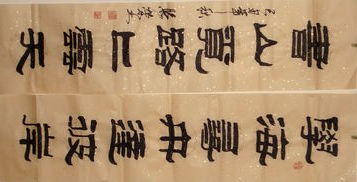 學海尋舟達彼岸
書山覓路上雲天